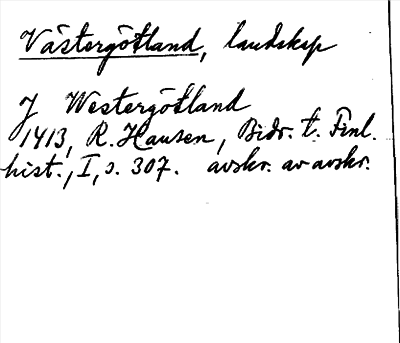 Västergötland, landskap
J Westergötland
1413, R. Hausen, Bidr. t. Finl.
hist., I, s. 307. avskr. av avskr.